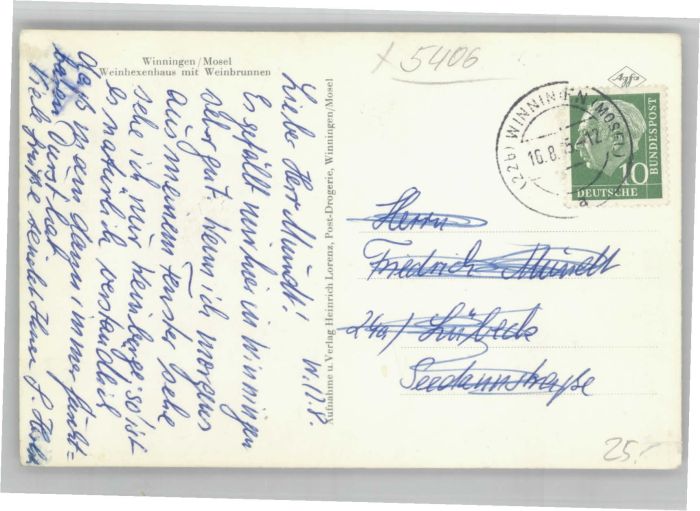 Winningen/Mosel
Weinhexenhaus mit Weinbrunnen
W. 17.8.
Liebe Herr Mundt!
Es gefällt mir hier in Winningen
sehr gut. Wenn ich morgens
aus meinem Fenster sehe
sehe ich nur Weinberge so ist
es natürlich verständlich
daß man dann immer furcht=
baren Durst hat.
Viele Grüße sendet Ihnen
Aufnahme u. Verlag Heinrich Lorenz, Post-Drogerie, Winningen/Mosel
x 5406
Agfa
(22b) WINNINGEN (MOSEL)
10
DEUTSCHE
BUNDESPOST
Herrn
Friedrich Mundt
24a) Lübeck
25.-